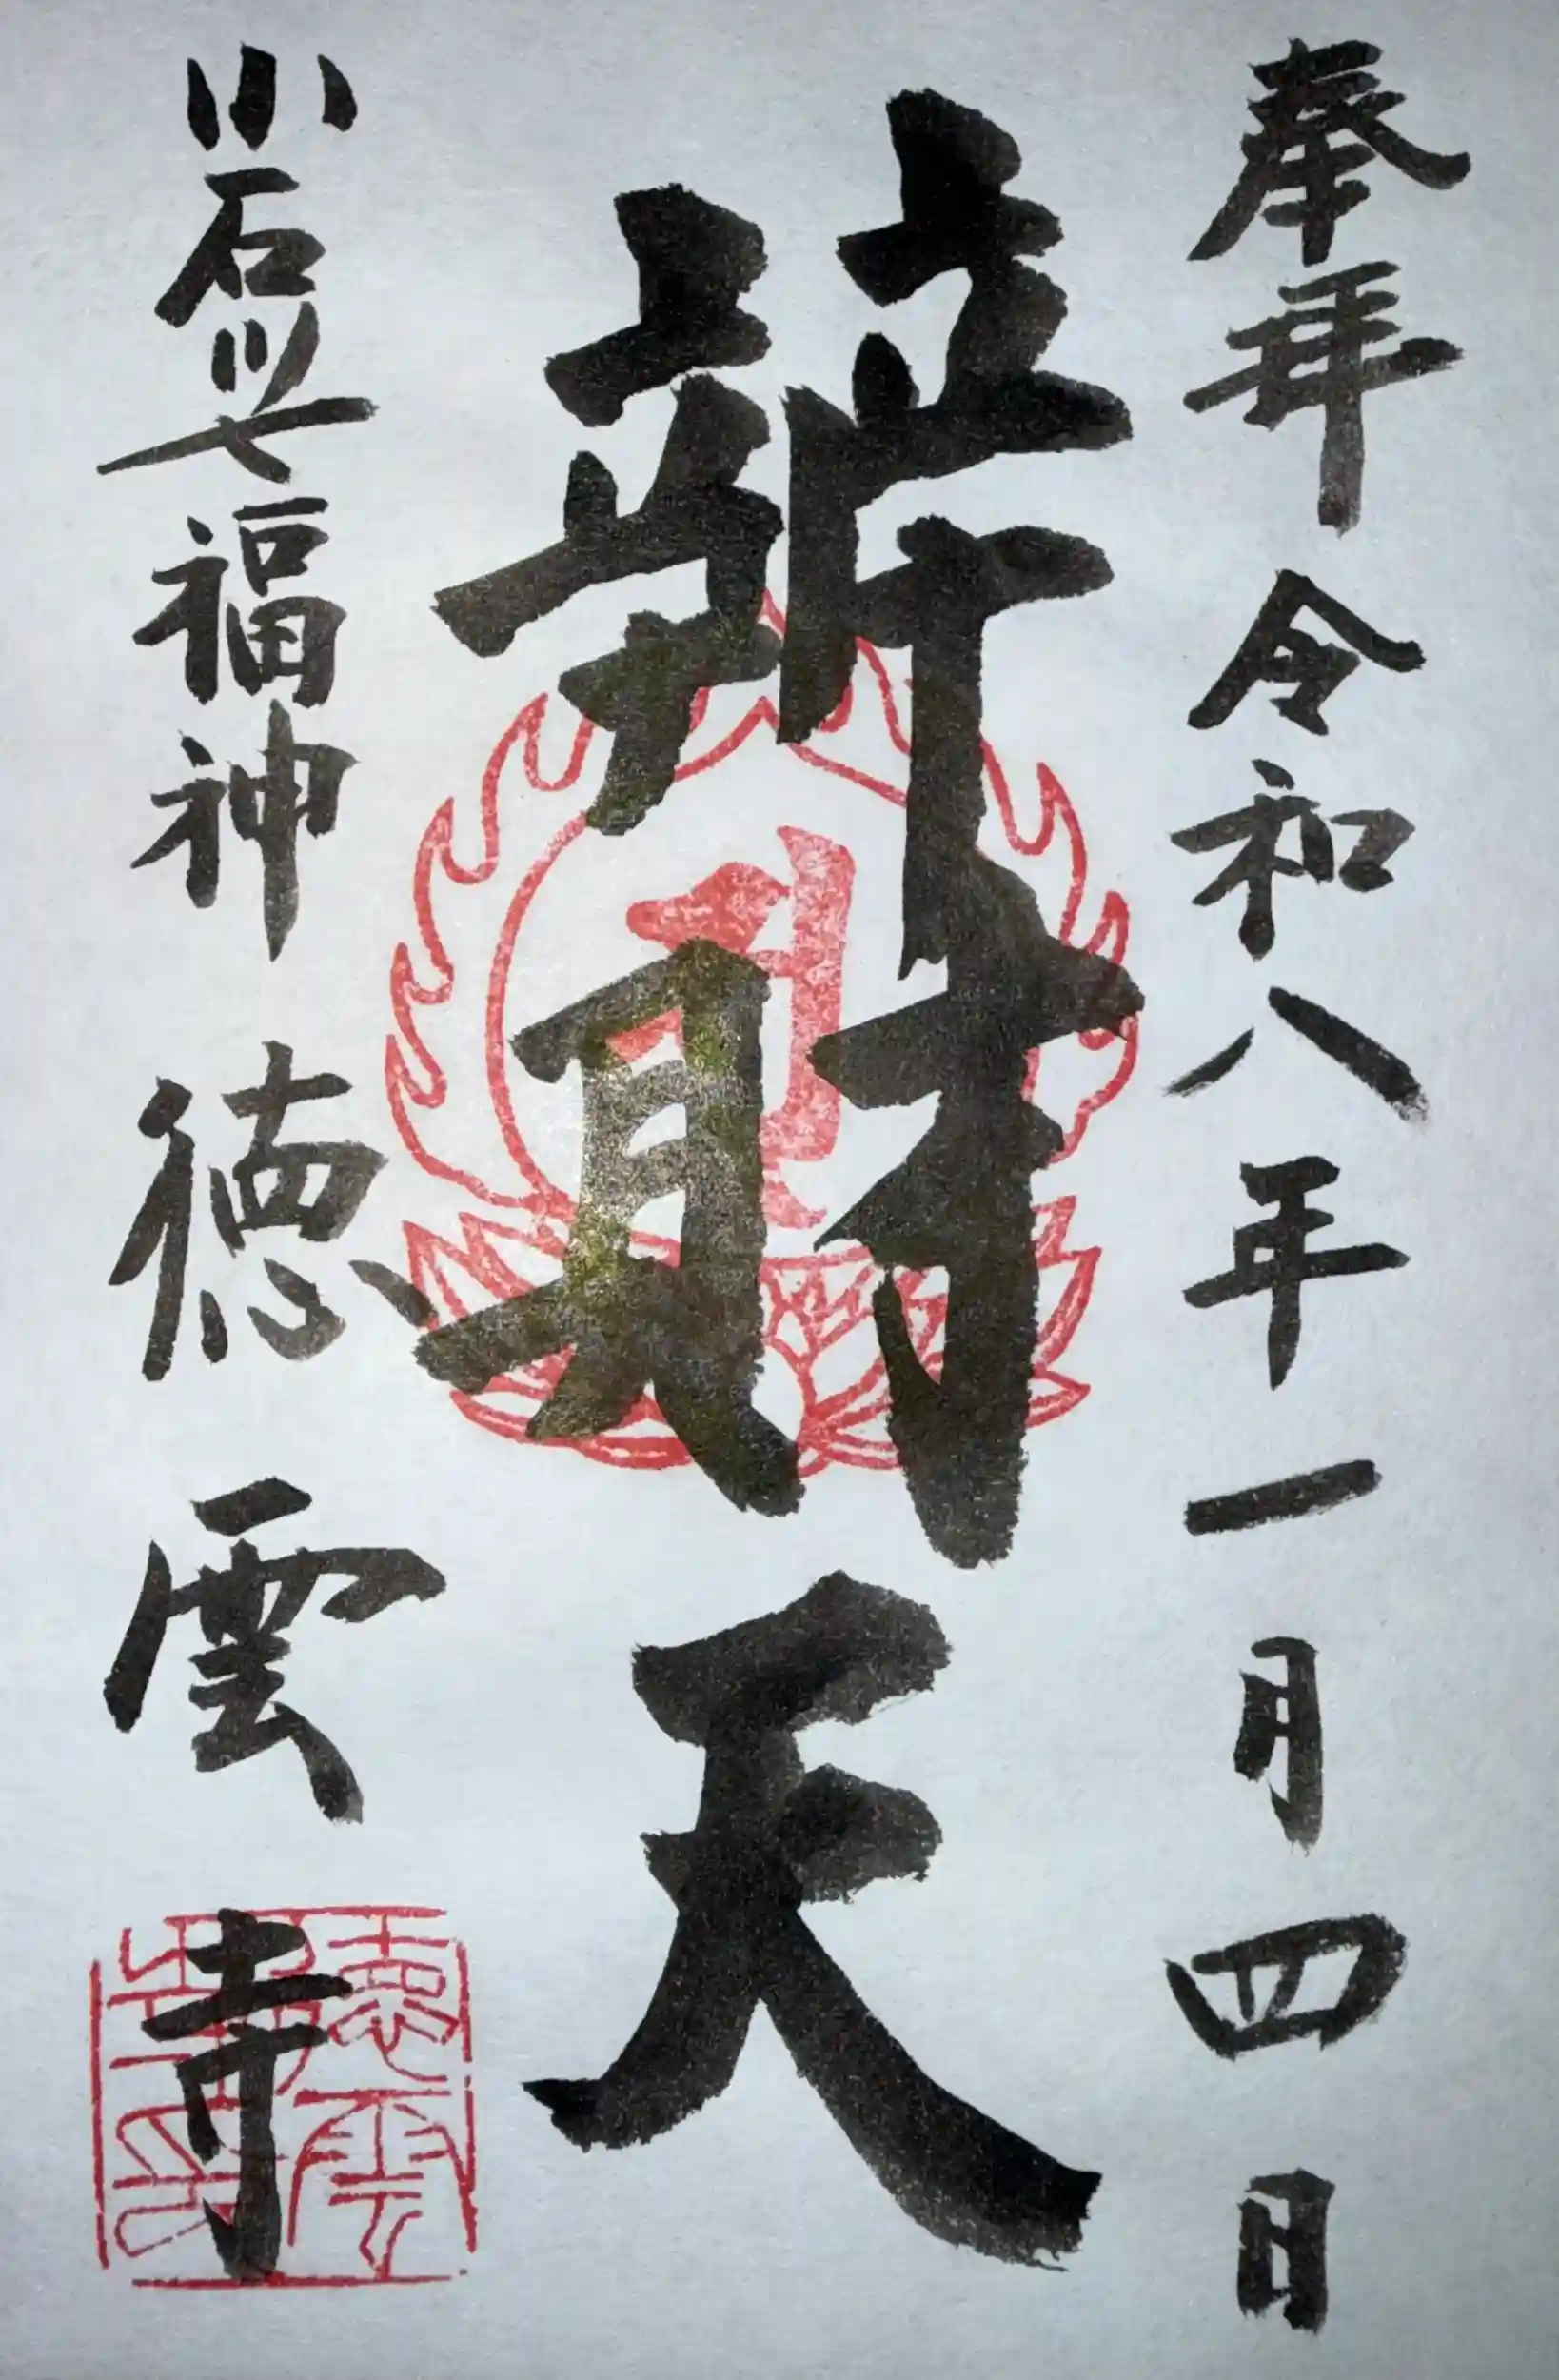 奉拝 令和八年一月四日
辨財天
小石川七福神 徳雲寺